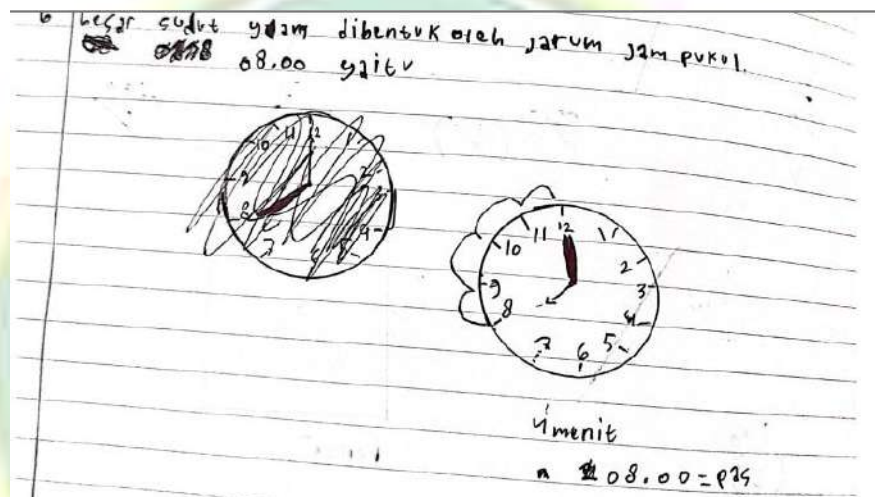 6 besar sudut ydam dibentuk oleh jarum jam pukul.
08.00 yaitu
10 11 12
9 2
8 3
7 4
6 5
11 12 1
10 2
9 3
8 4
7 6 5
menit
08.00 = pas